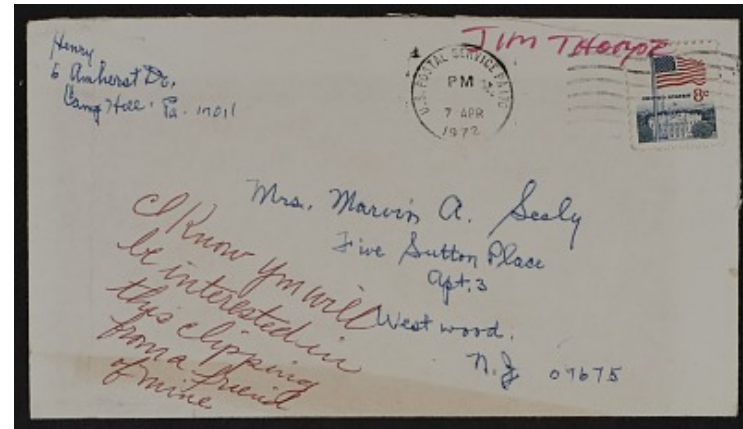 Henry
6 Amherst Dr.
Camp Hill. Pa. 17011
JIM THORPE
U.S. POSTAL SERVICE PA 170
PM
7 APR
1972
UNITED STATES 8c
Mrs. Marvin A. Seely
Five Sutton Place
Apt. 3
Westwood.
N.J 07675
I Know you will
be interested in
this clipping
from a friend
of mine